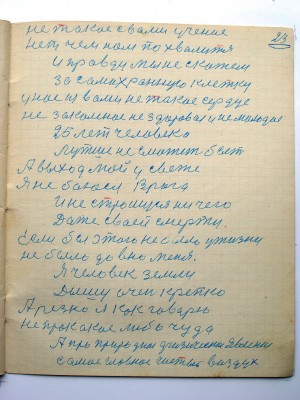 23
не такое с вами учение
нет чем нам похвалитя
И правду мы не скажем
За самохранную клетку
у нас и вами не такое сердце
не закольное не здоровая и не молодое
25 лет человека
лутше не сможит быт
А выход мой у свете
Я не боюся Врага
И не строищея ничего
Даже своей смерти.
Если бы этого не было у жизни
не было давно меня.
Я человек земли
Дышу очен крепко
А резко я как говорю
Не про какое либо чудо
А про природу физически явлении
Самое главное чистый воздух